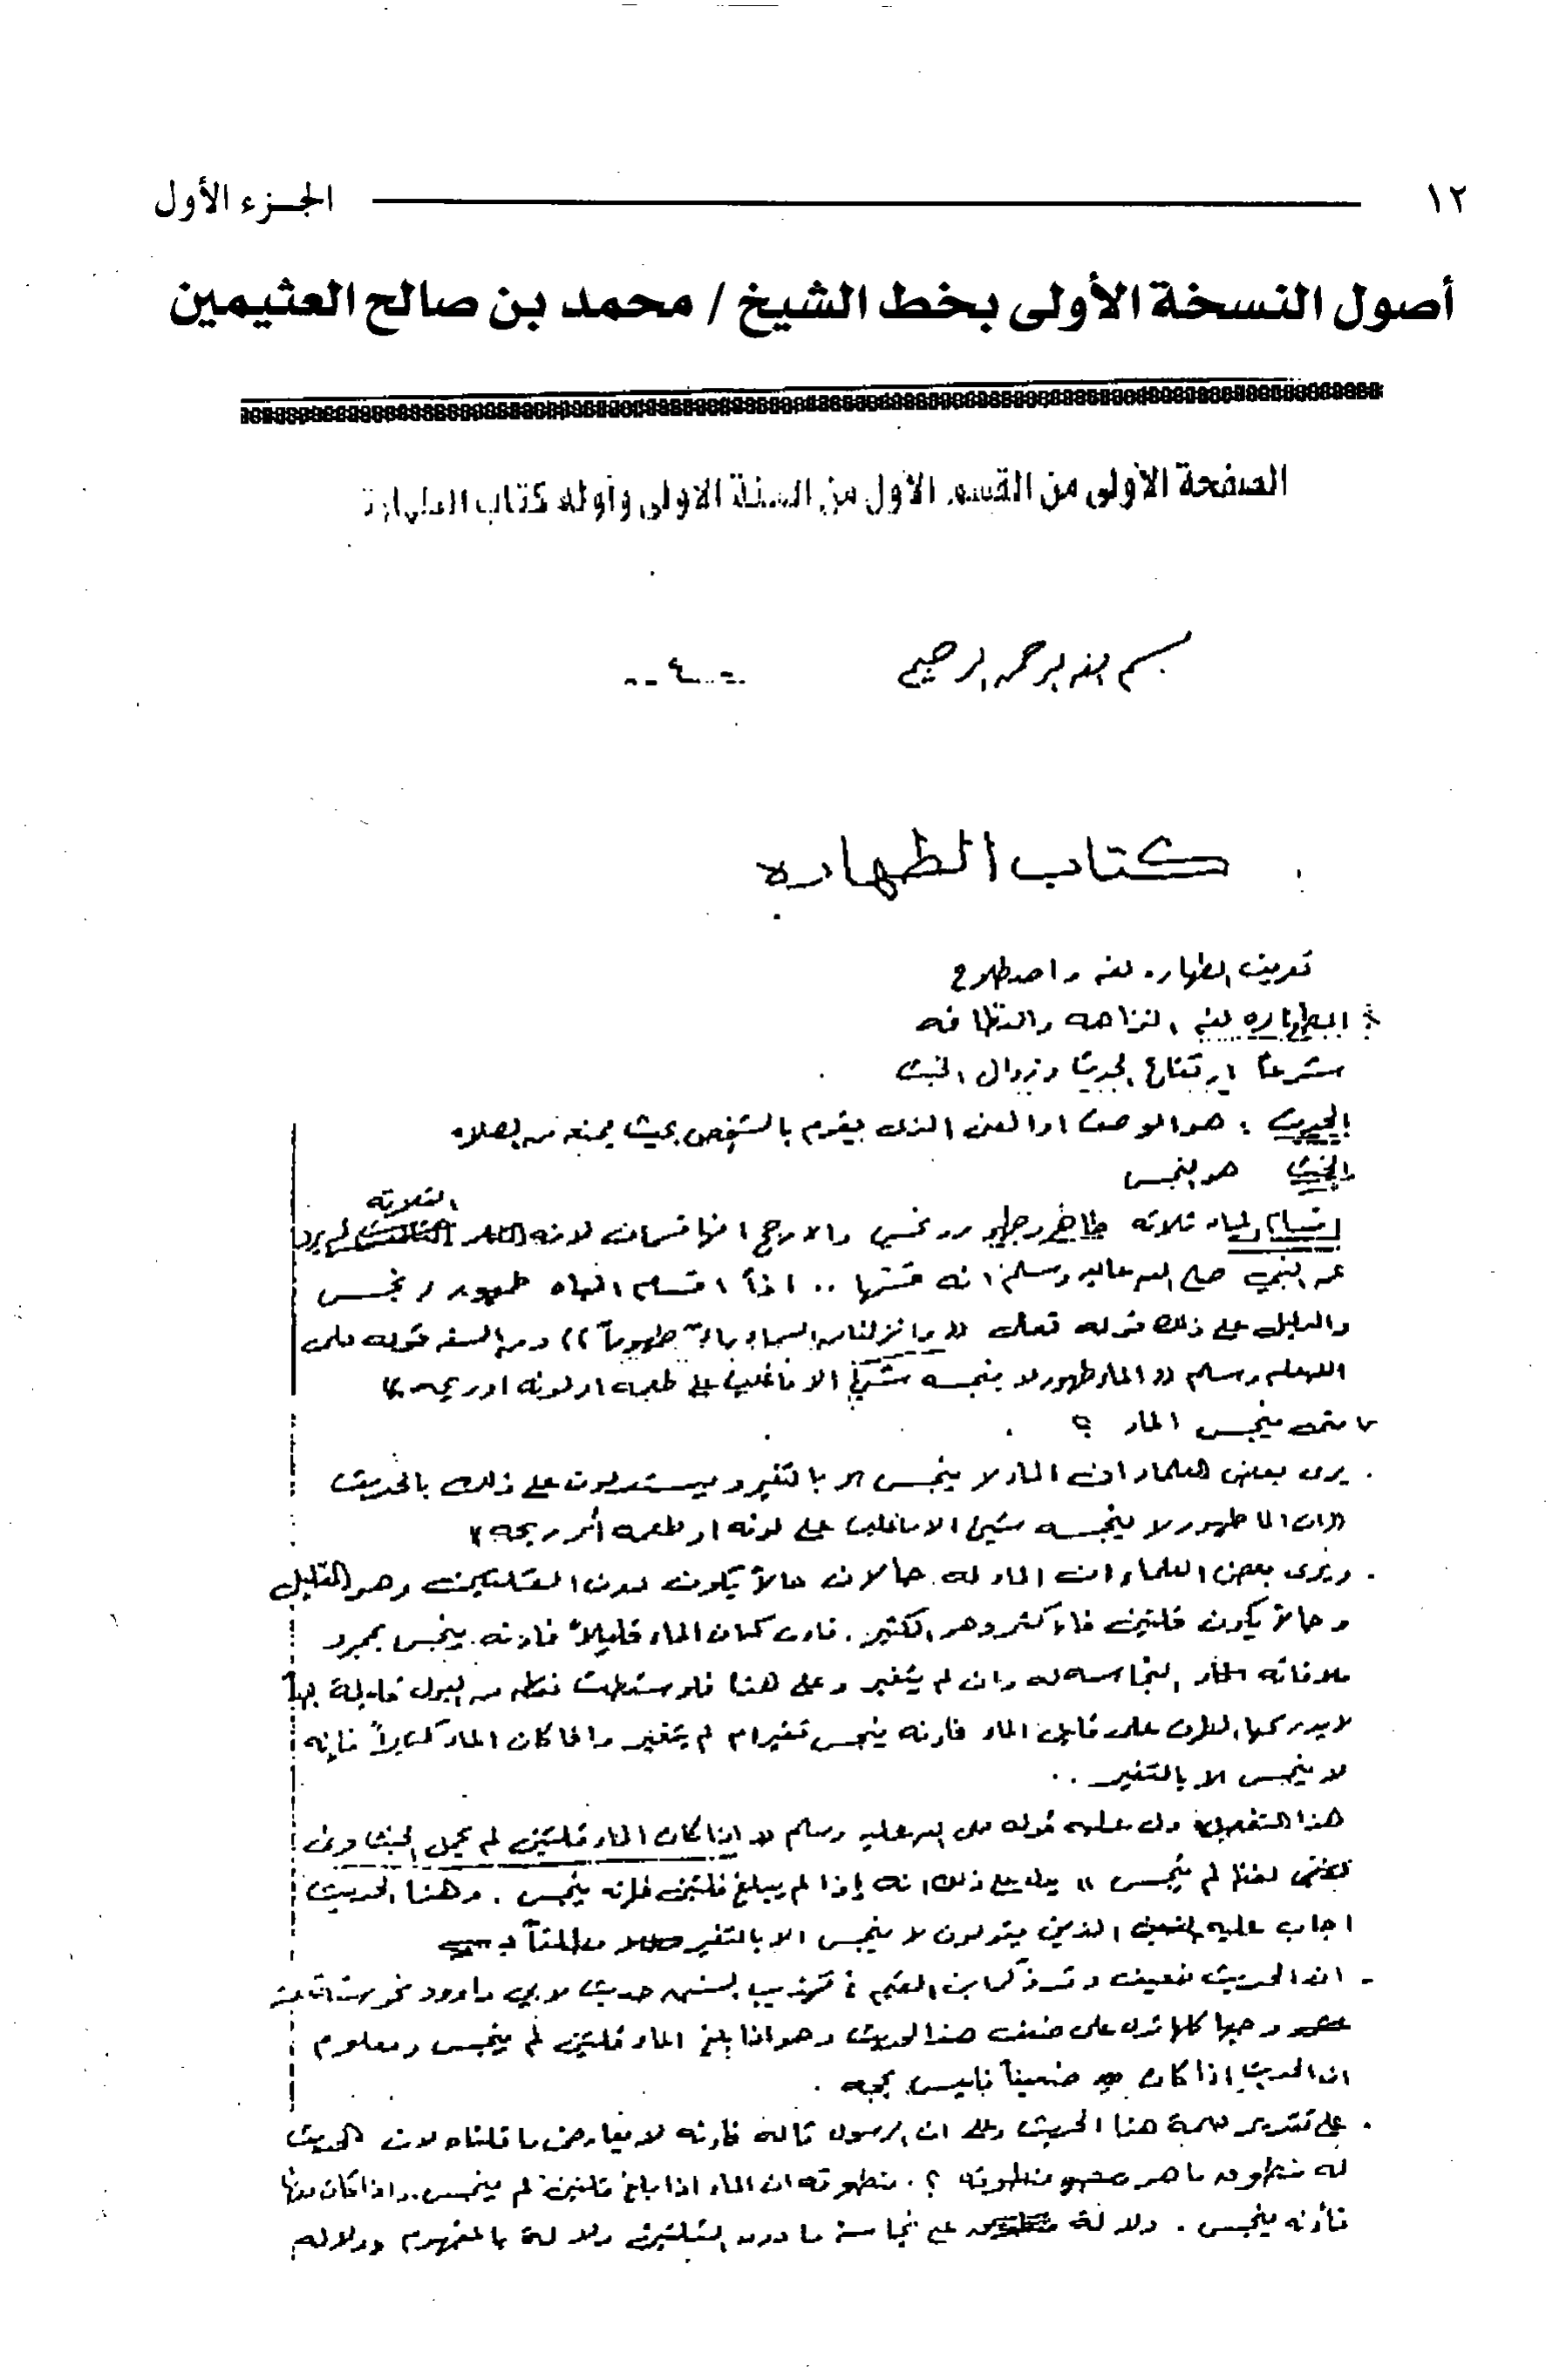 ١٢ الجـزء الأول
أصول النسخة الأولى بخط الشيخ / محمد بن صالح العثيمين
الصفحة الأولى من القسم الأول من السنة الأولى وأوله كتاب الطهارة
بسم الله الرحمن الرحيم
كتاب الطهاره
تعريف الطهاره لغه واصطلاح
الطهاره لغه النزاهه والنظافه
شرعاً ارتفاع الحدث وزوال الخبث
الحدث : هو الوصف او المعنى الذى يقوم بالشخص بحيث يمنعه من الصلاه
الخبث هو النجس
الثلاثة
اقسام المياه ثلاثه طاهر وطهور ونجس والارجح انها قسمان لانه لم يرد
عن النبي صلى الله عليه وسلم انه قسمها .. اذاً اقسام المياه طهور ونجس
والدليل على ذلك قوله تعالى (( وانزلنا من السماء ماءً طهوراً )) ومن السنه قوله صلى
الله عليه وسلم (( الماء طهور لا ينجسه شيئ الا ما غلب على طعمه او لونه او ريحه ))
متى ينجس الماء ؟
. يرى بعض العلماء ان الماء لا ينجس الا بالتغير ويستدلون على ذلك بالحديث
((ان الما طهور لا ينجسه شيئ الا ما غلب على لونه او طعمه أو ريحه ))
. ويرى بعض العلماء ان الماء له حالان حالاً يكون دون القلتين وهو القليل
وحالاً يكون قلتين فاكثر وهو الكثير . فان كان الماء قليلاً فانه ينجس بمجرد
ملاقاته النجاسه له وان لم يتغير وعلى هذا فلو سقطت نقطه من البول
لا يدركها الطرف على قليل الماء فانه ينجس تغير ام لم يتغير واذا كان الماء كثيراً فإنه
لا ينجس الا بالتغير ..
هذا التفصيل دل عليه قوله صلى الله عليه وسلم (( اذا كان الماء قلتين لم يحمل الخبث وفى
لفظ لم ينجس )) يدل على ذلك انه إذا لم يبلغ قلتين فإنه ينجس . وهذا الحديث
اجاب عليه الذين يقولون لا ينجس الا بالتغير مطلقاً بـ
- ان الحديث ضعيف وقد ذكر ابن القيم فى تهذيب السنن حديث لابي داوود نحو ستة عشر
وجها كلها تدل على ضعف هذا الحديث وهو اذا بلغ الماء قلتين لم ينجس ومعلوم
ان الحديث اذا كان ضعيفاً فليس بحجه .
. على تقدير صحة هذا الحديث وعلى ان الرسول قاله فانه لا يعارض ما قلناه لان الحديث
له منطوق ما هو منطوقه ؟ . منطوقه ان الماء اذا بلغ قلتين لم ينجس. واذا كان دونها
فأنه ينجس . دلالة على نجاسة ما دون القلتين دلالة بالمفهوم ودلالة